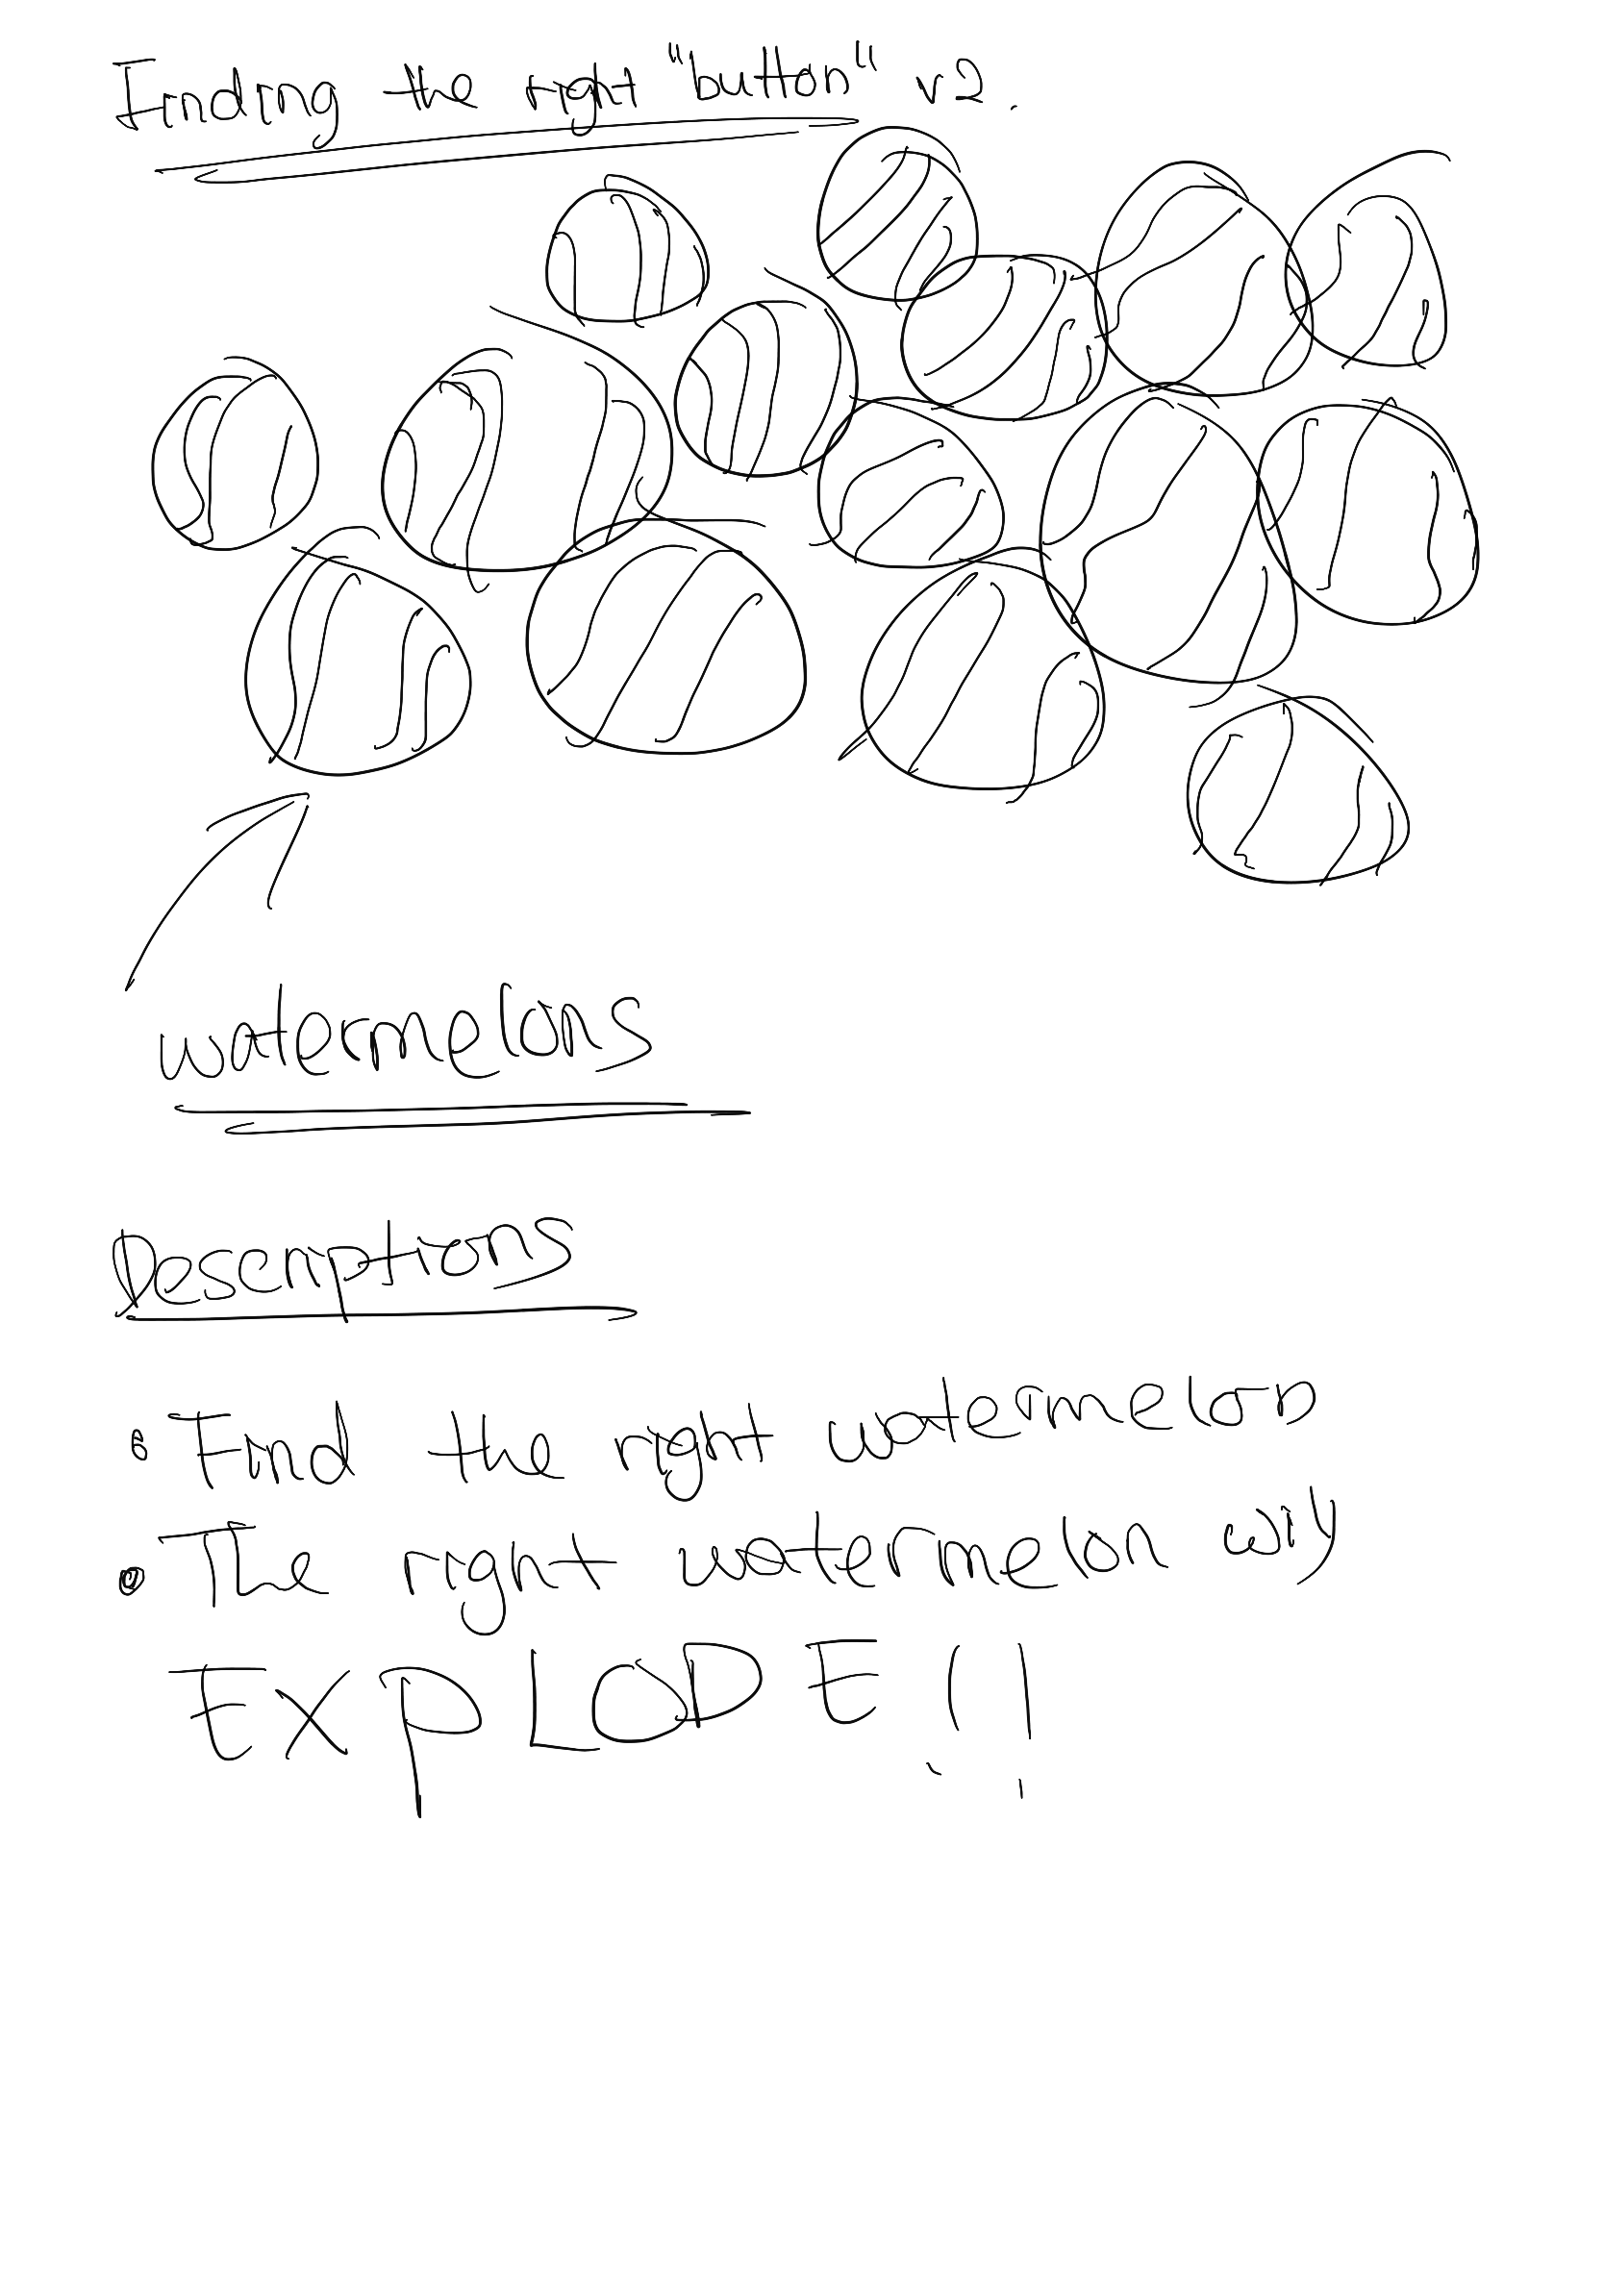 Finding the right "button" v2.
watermelons
Descriptions
• Find the right watermelon
• The right watermelon will
EXPLODE!!